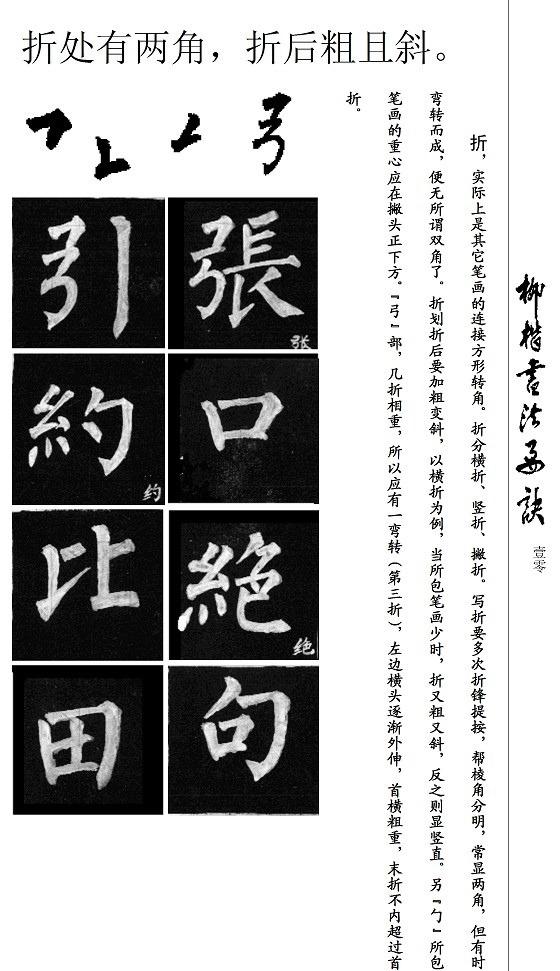 折处有两角，折后粗且斜。
柳楷书法要诀
壹零
折，实际上是其它笔画的连接方形转角。折分横折、竖折、撇折。写折要多次折锋提按，帮棱角分明，常显两角，但有时
弯转而成，便无所谓双角了。折划折后要加粗变斜，以横折为例，当所包笔画少时，折又粗又斜，反之则显竖直。另『勹』所包
笔画的重心应在撇头正下方。『弓』部，几折相重，所以应有一弯转（第三折），左边横头逐渐外伸，首横粗重，末折不内超过首
折。
張 张
引
口
約 约
絕 绝
比
句
田